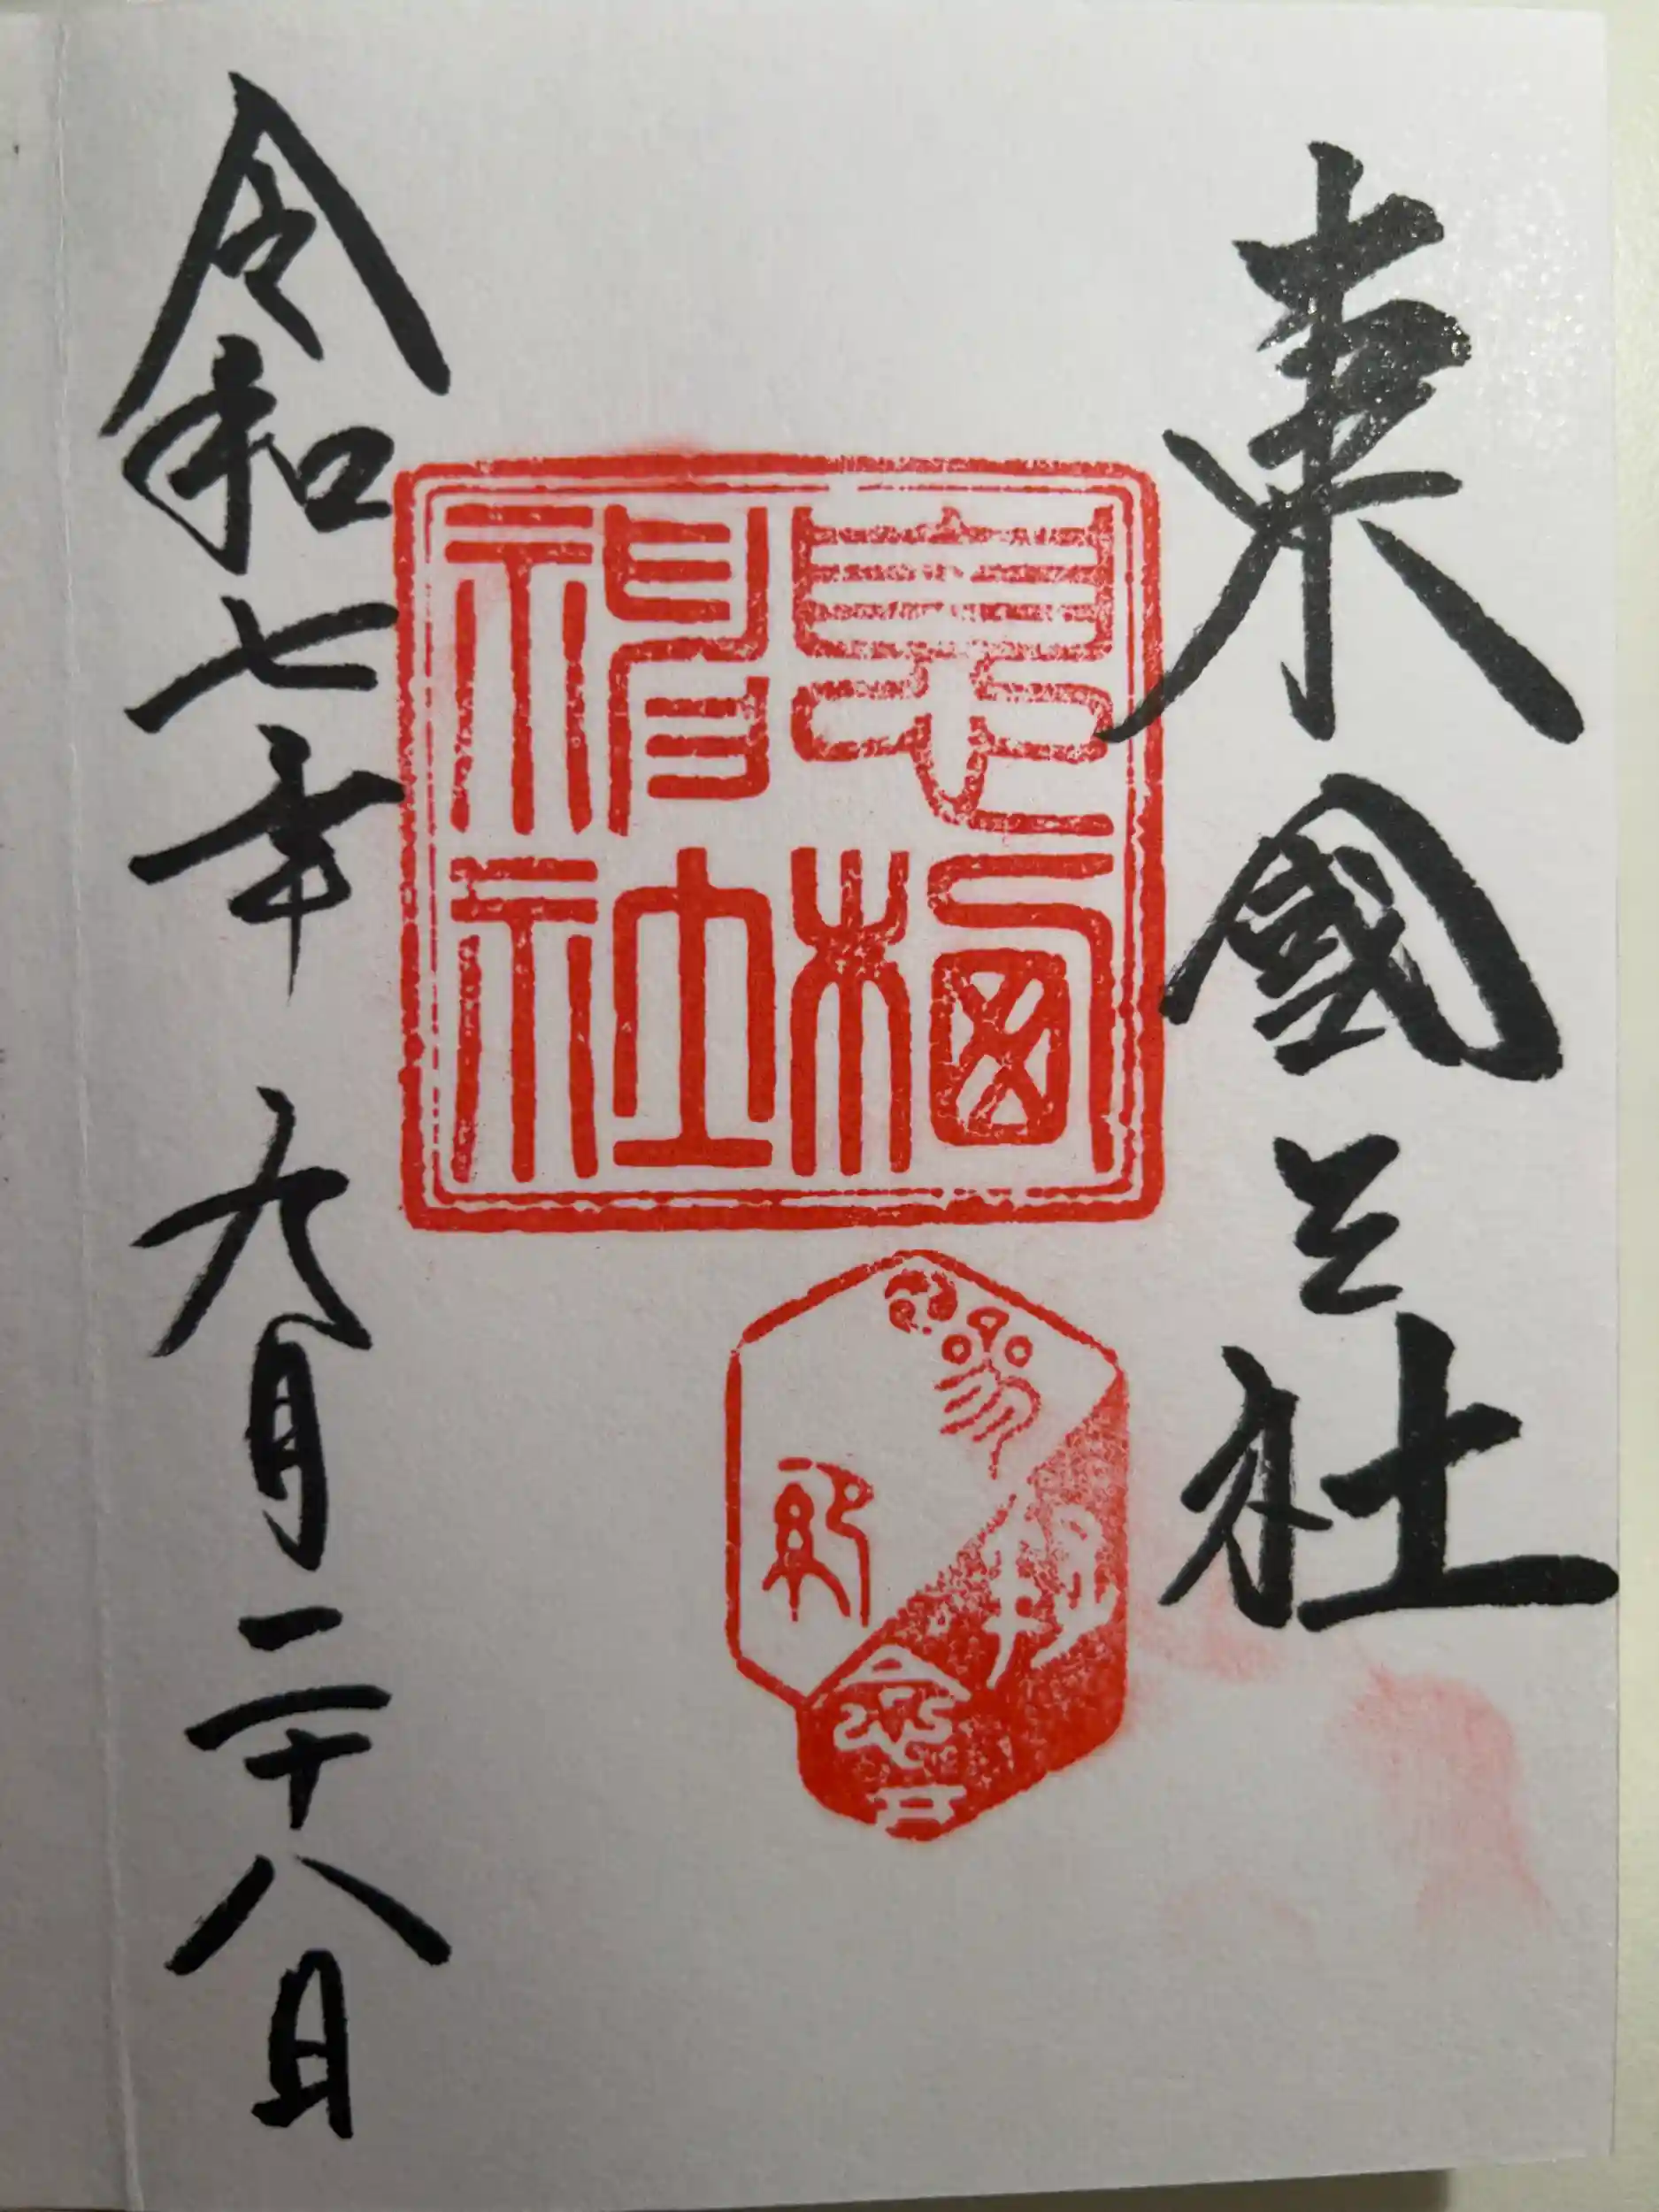 東國三社
息栖神社
参拝
令和七年 九月二十八日